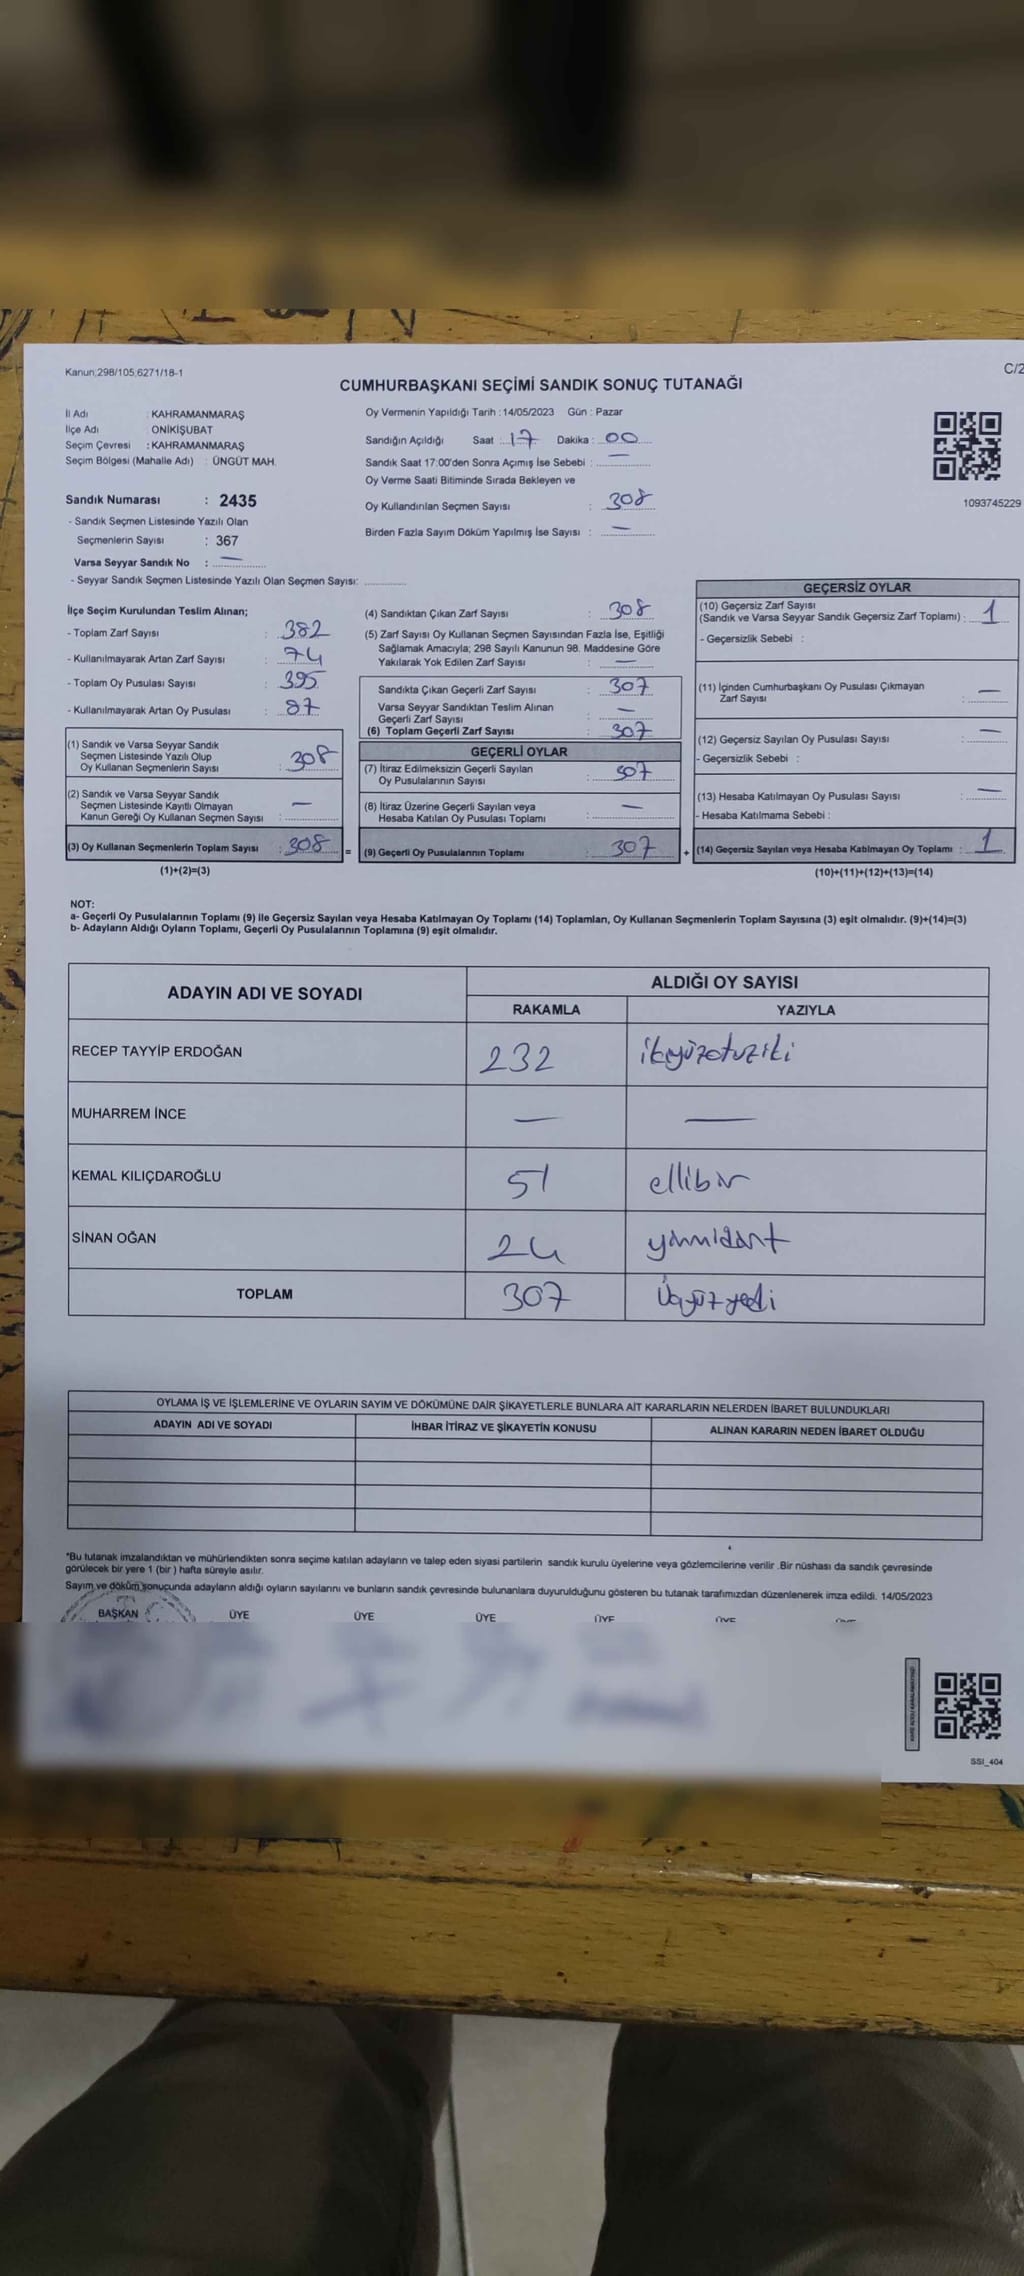 Kanun;298/105;6271/18-1
C/2
CUMHURBAŞKANI SEÇİMİ SANDIK SONUÇ TUTANAĞI
İl Adı : KAHRAMANMARAŞ
İlçe Adı ONİKİŞUBAT
Seçim Çevresi : KAHRAMANMARAŞ
Seçim Bölgesi (Mahalle Adı) : ÜNGÜT MAH.
Sandık Numarası : 2435
- Sandık Seçmen Listesinde Yazılı Olan
Seçmenlerin Sayısı : 367
Varsa Seyyar Sandık No : —
- Seyyar Sandık Seçmen Listesinde Yazılı Olan Seçmen Sayısı:
Oy Vermenin Yapıldığı Tarih : 14/05/2023 Gün : Pazar
Sandığın Açıldığı Saat : 17 Dakika : 00
Sandık Saat 17:00'den Sonra Açımış İse Sebebi : —
Oy Verme Saati Bitiminde Sırada Bekleyen ve
Oy Kullandırılan Seçmen Sayısı : 308
Birden Fazla Sayım Döküm Yapılmış İse Sayısı : —
1093745229
İlçe Seçim Kurulundan Teslim Alınan;
- Toplam Zarf Sayısı : 382
- Kullanılmayarak Artan Zarf Sayısı : 74
- Toplam Oy Pusulası Sayısı : 395
- Kullanılmayarak Artan Oy Pusulası : 87
(1) Sandık ve Varsa Seyyar Sandık
Seçmen Listesinde Yazılı Olup
Oy Kullanan Seçmenlerin Sayısı : 308
(2) Sandık ve Varsa Seyyar Sandık
Seçmen Listesinde Kayıtlı Olmayan
Kanun Gereği Oy Kullanan Seçmen Sayısı : —
(3) Oy Kullanan Seçmenlerin Toplam Sayısı : 308
(1)+(2)=(3)
=
(4) Sandıktan Çıkan Zarf Sayısı : 308
(5) Zarf Sayısı Oy Kullanan Seçmen Sayısından Fazla İse, Eşitliği
Sağlamak Amacıyla; 298 Sayılı Kanunun 98. Maddesine Göre
Yakılarak Yok Edilen Zarf Sayısı : —
Sandıkta Çıkan Geçerli Zarf Sayısı : 307
Varsa Seyyar Sandıktan Teslim Alınan
Geçerli Zarf Sayısı : —
(6) Toplam Geçerli Zarf Sayısı : 307
GEÇERLİ OYLAR
(7) İtiraz Edilmeksizin Geçerli Sayılan
Oy Pusulalarının Sayısı : 307
(8) İtiraz Üzerine Geçerli Sayılan veya
Hesaba Katılan Oy Pusulası Toplamı : —
(9) Geçerli Oy Pusulalarının Toplamı : 307
+
GEÇERSİZ OYLAR
(10) Geçersiz Zarf Sayısı
(Sandık ve Varsa Seyyar Sandık Geçersiz Zarf Toplamı) : 1
- Geçersizlik Sebebi :
(11) İçinden Cumhurbaşkanı Oy Pusulası Çıkmayan
Zarf Sayısı : —
(12) Geçersiz Sayılan Oy Pusulası Sayısı : —
- Geçersizlik Sebebi :
(13) Hesaba Katılmayan Oy Pusulası Sayısı : —
- Hesaba Katılmama Sebebi :
(14) Geçersiz Sayılan veya Hesaba Katılmayan Oy Toplamı : 1
(10)+(11)+(12)+(13)=(14)
NOT:
a- Geçerli Oy Pusulalarının Toplamı (9) ile Geçersiz Sayılan veya Hesaba Katılmayan Oy Toplamı (14) Toplamları, Oy Kullanan Seçmenlerin Toplam Sayısına (3) eşit olmalıdır. (9)+(14)=(3)
b- Adayların Aldığı Oyların Toplamı, Geçerli Oy Pusulalarının Toplamına (9) eşit olmalıdır.
ADAYIN ADI VE SOYADI ALDIĞI OY SAYISI
RAKAMLA YAZIYLA
RECEP TAYYİP ERDOĞAN 232 ikiyüzotuziki
MUHARREM İNCE — —
KEMAL KILIÇDAROĞLU 51 ellibir
SİNAN OĞAN 24 yirmidört
TOPLAM 307 üçyüzyedi
OYLAMA İŞ VE İŞLEMLERİNE VE OYLARIN SAYIM VE DÖKÜMÜNE DAİR ŞİKAYETLERLE BUNLARA AİT KARARLARIN NELERDEN İBARET BULUNDUKLARI
ADAYIN ADI VE SOYADI İHBAR İTİRAZ VE ŞİKAYETİN KONUSU ALINAN KARARIN NEDEN İBARET OLDUĞU
*Bu tutanak imzalandıktan ve mühürlendikten sonra seçime katılan adayların ve talep eden siyasi partilerin sandık kurulu üyelerine veya gözlemcilerine verilir .Bir nüshası da sandık çevresinde
görülecek bir yere 1 (bir ) hafta süreyle asılır.
Sayım ve döküm sonucunda adayların aldığı oyların sayılarını ve bunların sandık çevresinde bulunanlara duyurulduğunu gösteren bu tutanak tarafımızdan düzenlenerek imza edildi. 14/05/2023
BAŞKAN ÜYE ÜYE ÜYE ÜYE ÜYE
SSI_404